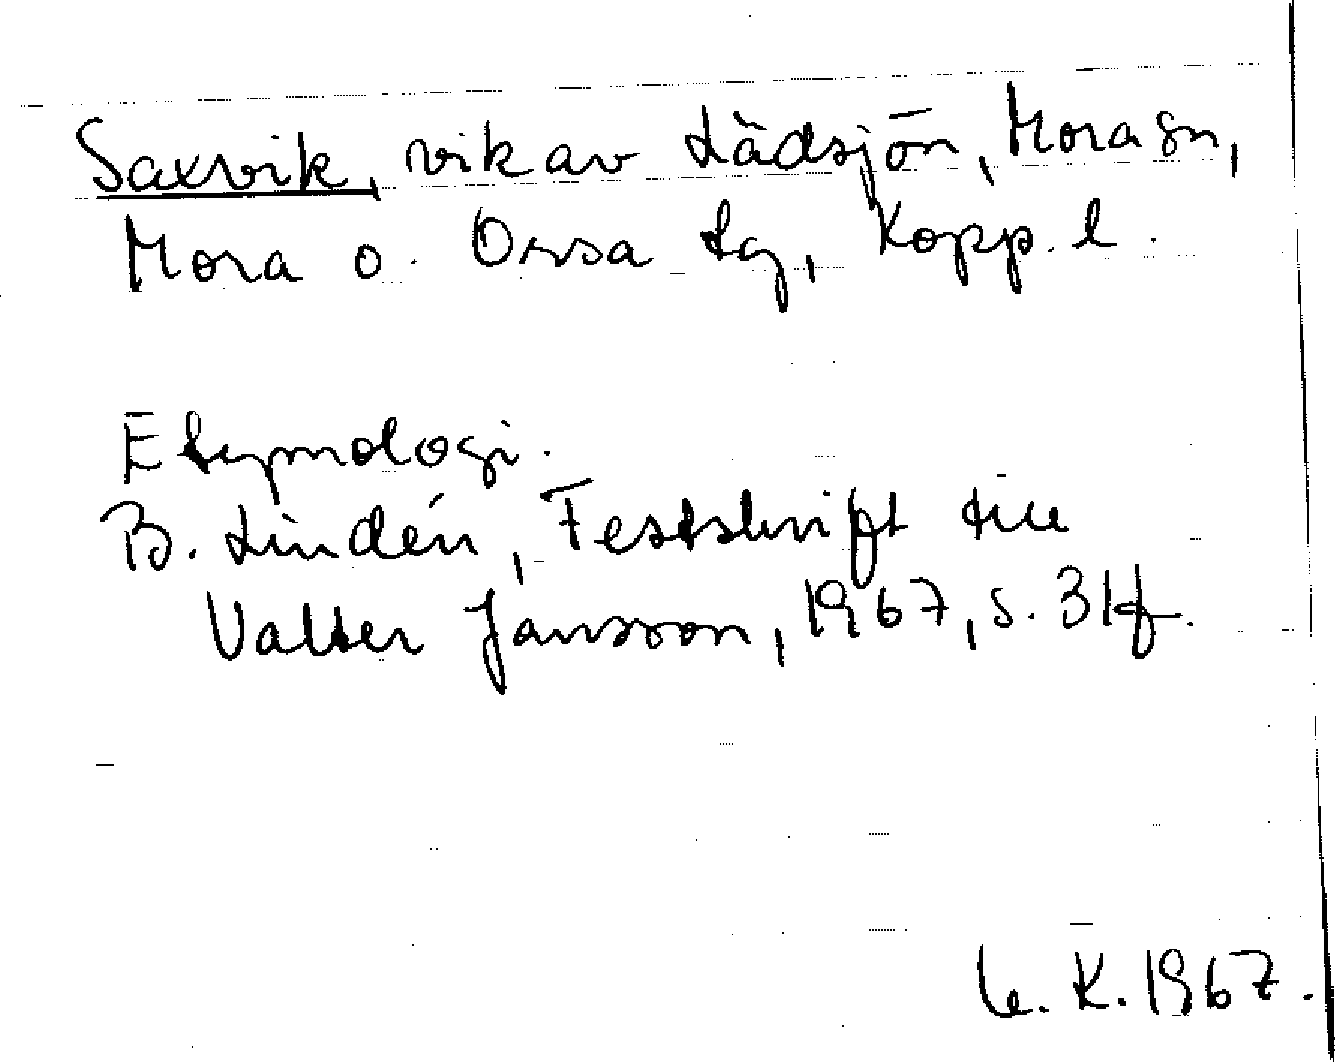 Saxvik, vik av Lädsjön, Mora sn,
Mora o. Orsa tg, Kopp. l.
Etymologi.
B. Lindén, Festskrift till
Valter Jansson, 1967, s. 31f.
K. 1967.